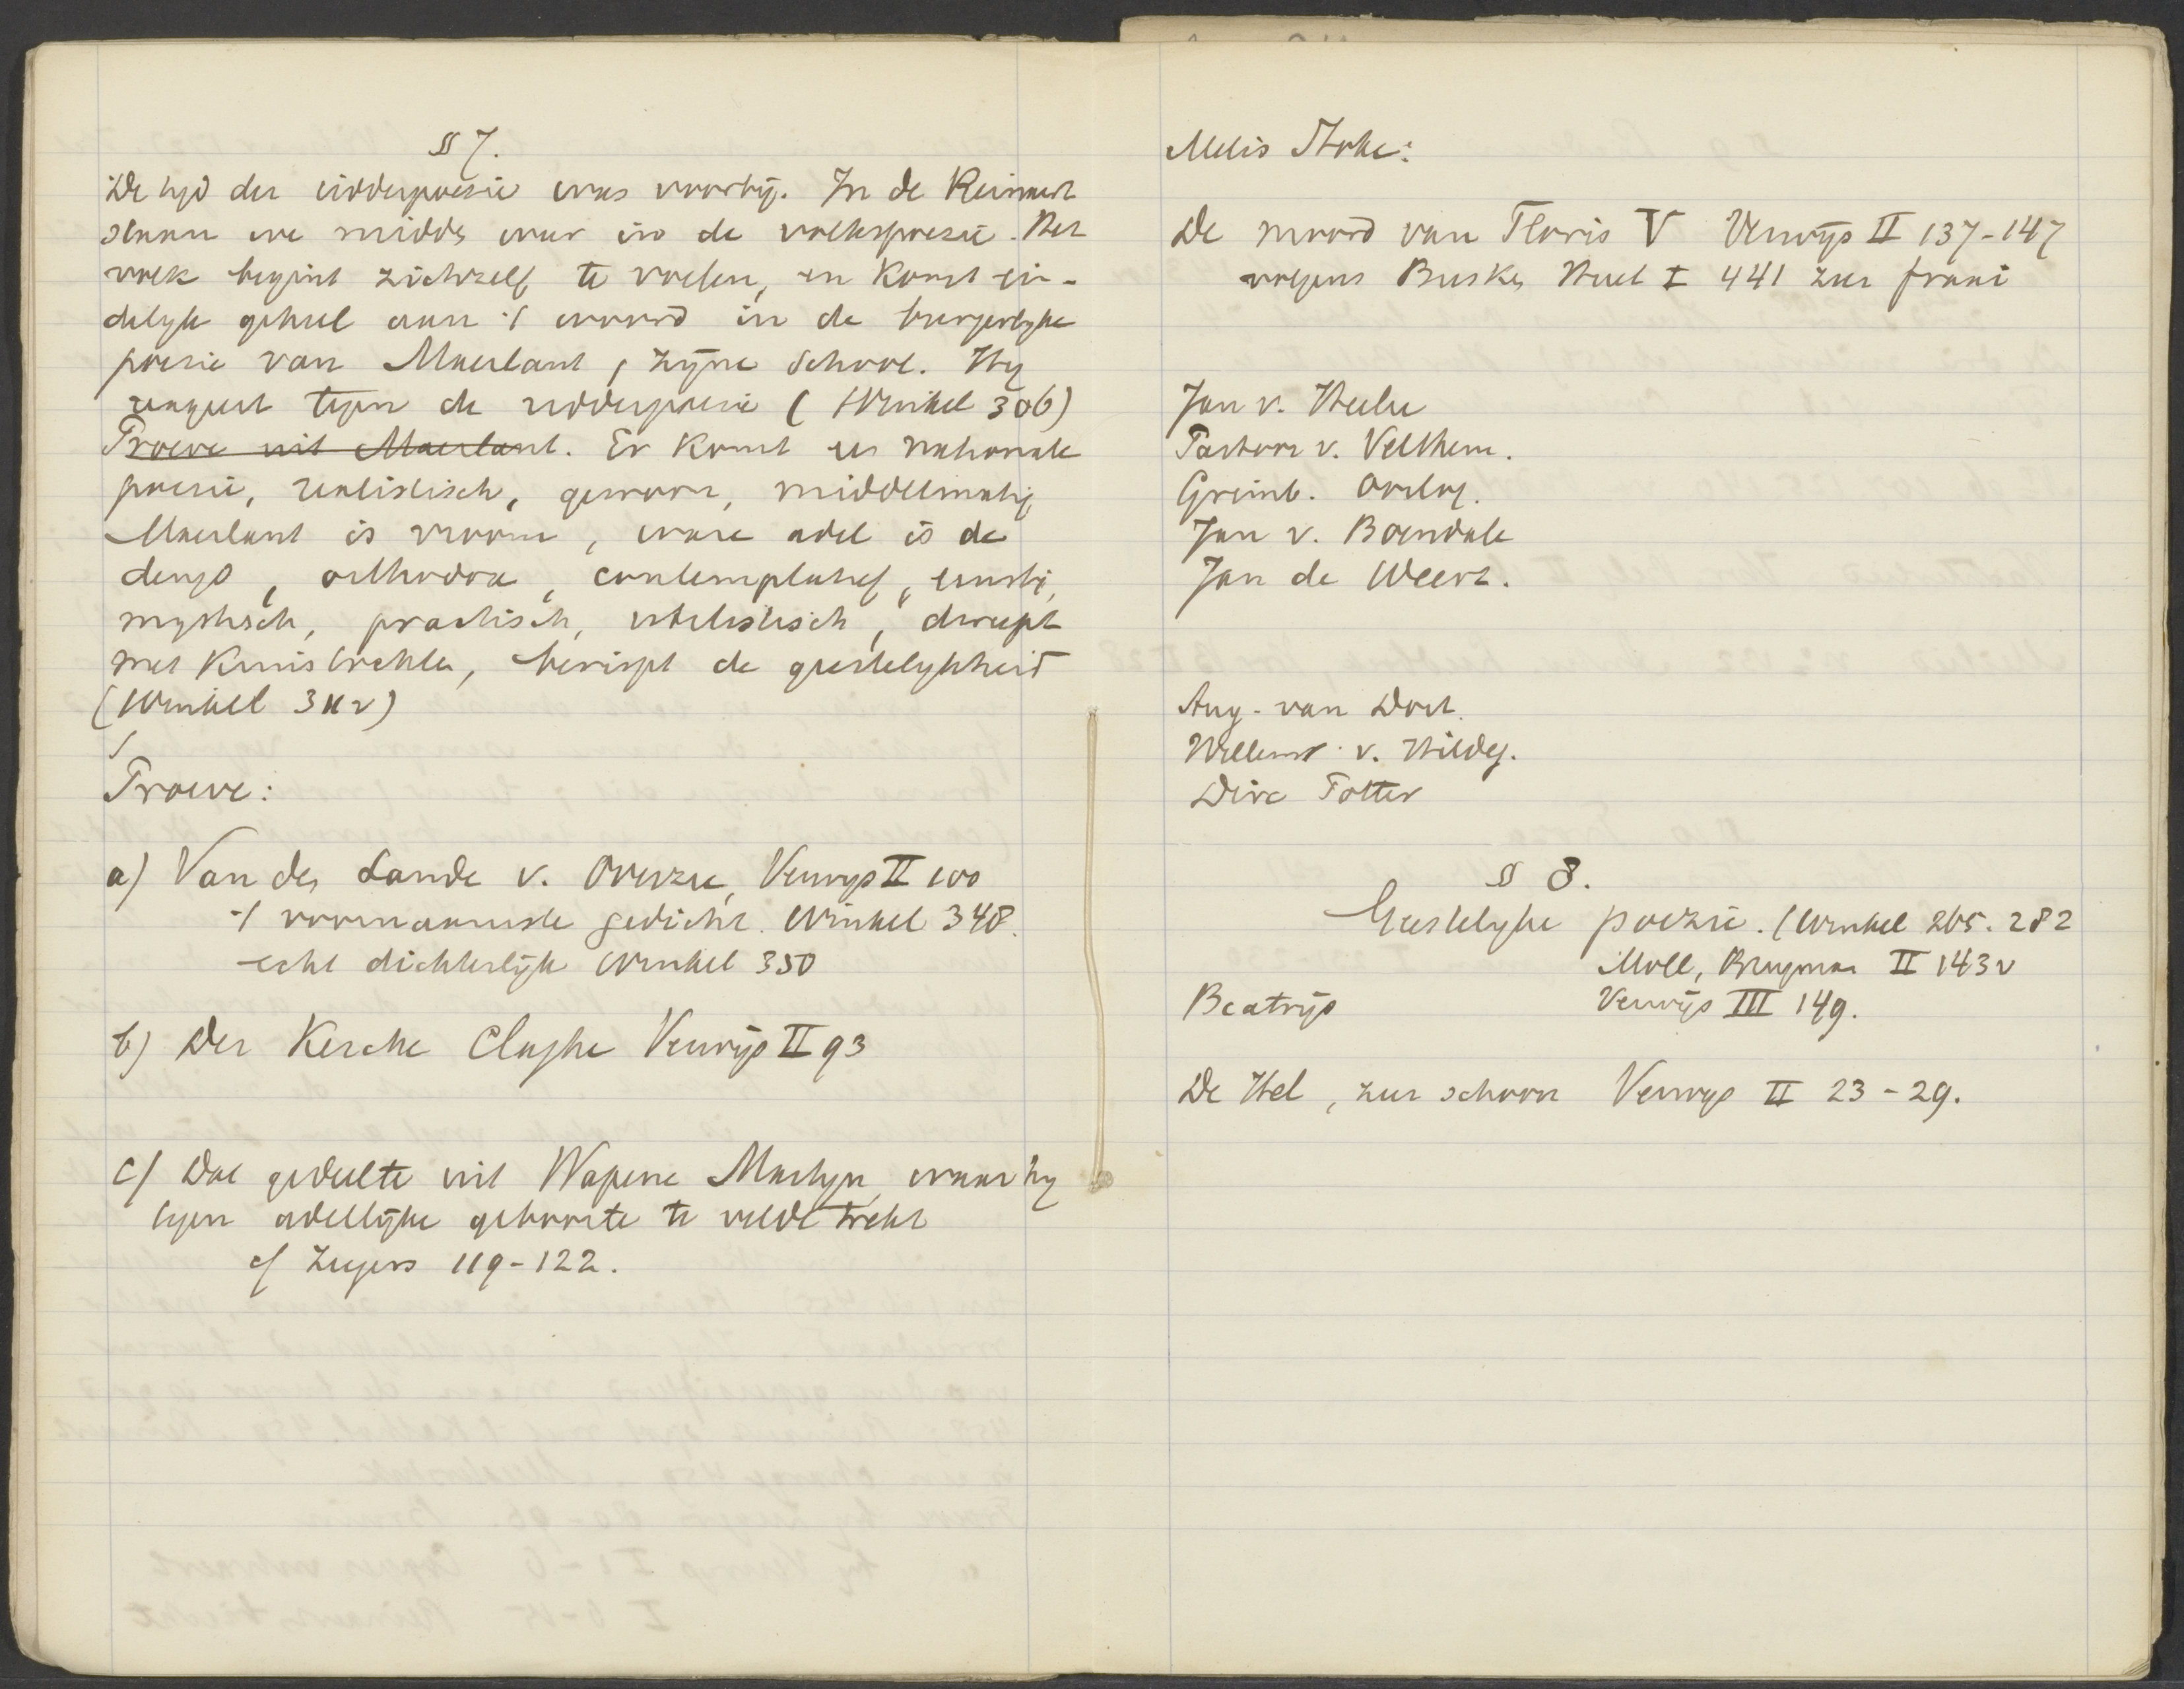 § 7.
De tyd der ridderpoesie was voorby. In de Reinaert
staan we midden in de volkspoesie. Het
volk begint zichzelf te voelen, en komt ein-
delyk geheel aan 't woord in de burgerlyke
poesie van Maerlant, zyne school. Hy
reageert tegen de ridderpoesie (Winkel 306)
Proeve uit Maerlant. Er komt een nationale
poesie, realistisch, gewoon, middelmatig
Maerlant is vroom, ware adel is de
deugd, orthodox, contemplatief, ernstig,
mystisch, practisch, utilistisch, dweept
met kruistochten, berispt de geestelykheid
(Winkel 311 v)
Proeve:
a) Van den Lande v. Overzee, Verwys II 100
't voornaamste gedicht. Winkel 348.
echt dichterlyk Winkel 350
b) Der Kercke Claghe Verwijs II 93
c) Dat gedeelte uit Wapene Martyn, waar hy
tegen adellijke geboorte te velde trekt
cf Zuyers 119-122.
Melis Stoke:
De moord van Floris V Verwijs II 137-147
volgens Busken Huet I 441 zeer fraai
Jan v. Heelu
Pastoor v. Velthem.
Grimb. Oorlog.
Jan v. Boendale
Jan de Weert.
Aug. van Dort.
Willem v. Hildeg.
Dirc Potter
§ 8.
Geestelyke poezie. (Winkel 265. 282
Moll, Brugman II 143 v
Beatrijs Verwijs III 149.
De Hel, zeer schoon Verwys II 23-29.